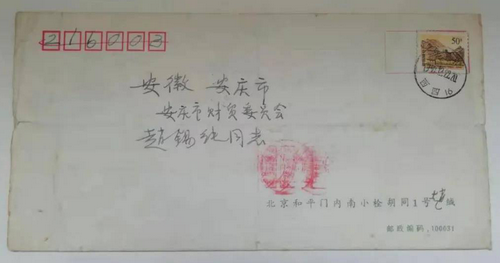 216003
50分
安徽 安庆市
安庆市财贸委员会
赵锡纯同志
北京和平门内南小栓胡同1号 缄
邮政编码：100031